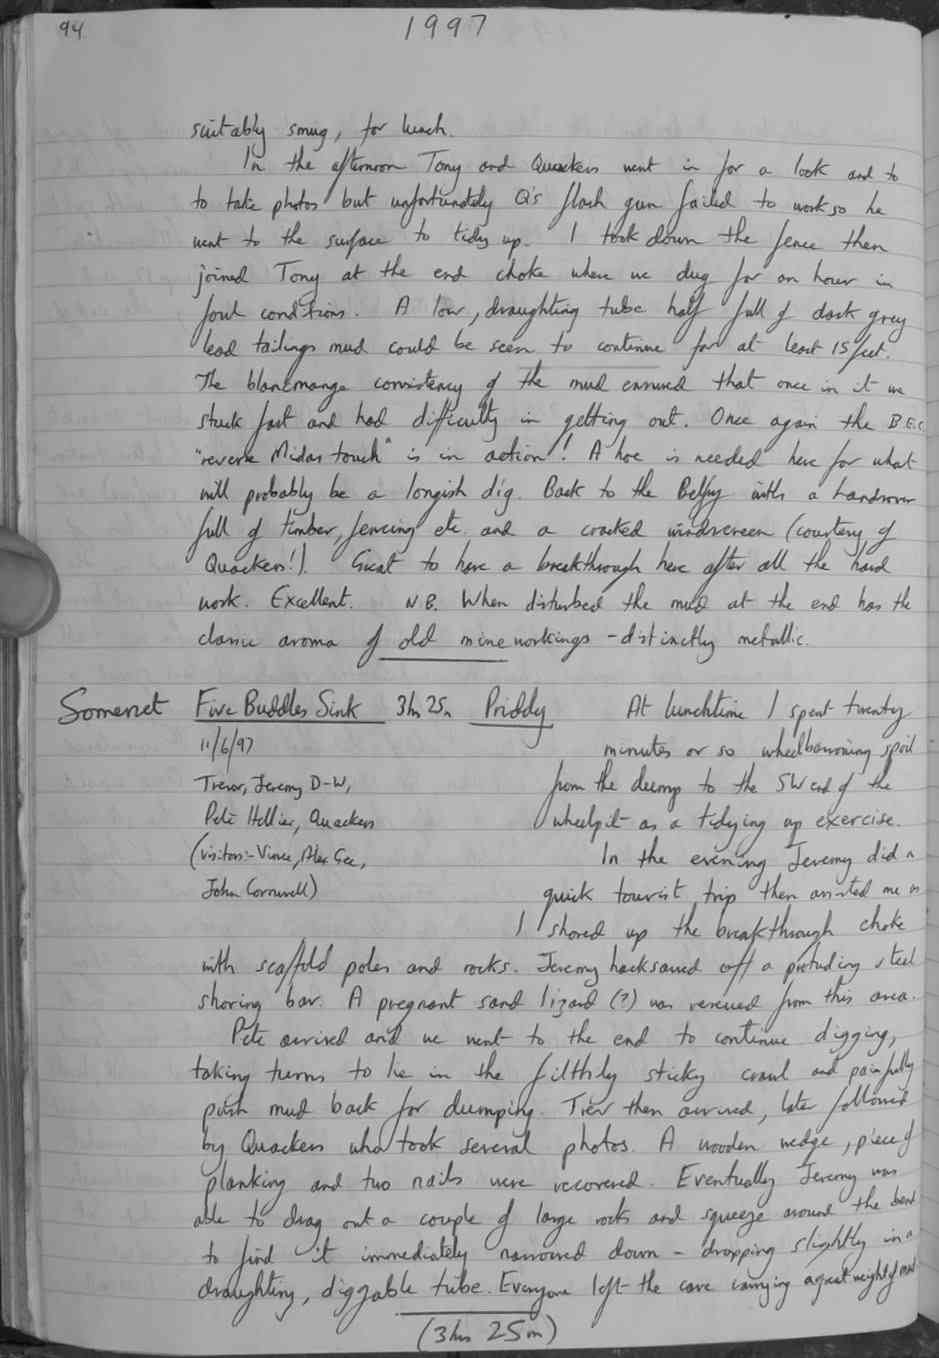 94
1997
suitably smug, for lunch.
In the afternoon Tony and Quackers went in for a look and to
to take photos but unfortunately Q's flash gun failed to work so he
went to the surface to tidy up. I took down the fence then
joined Tony at the end choke where we dug for an hour in
foul conditions. A low, draughting tube half full of dark grey
lead tailings mud could be seen to continue for at least 15 feet.
The blancmange consistency of the mud ensured that once in it we
stuck fast and had difficulty in getting out. Once again the B.E.C.
"reverse Midas touch" is in action! A hoe is needed here for what
will probably be a longish dig. Back to the Belfry with a landrover
full of timber, fencing etc. and a cracked windscreen (courtesy of
Quackers!). Great to have a breakthrough here after all the hard
work. Excellent. N.B. When disturbed the mud at the end has the
classic aroma of old mine workings - distinctly metallic.
Somerset Five Buddles Sink 3hr 25m Priddy At lunchtime I spent twenty
11/6/97 minutes or so wheelbarrowing spoil
Trevor, Jeremy D-W, from the dump to the SW end of the
Pete Hellier, Quackers wheelpit as a tidying up exercise.
(visitors:- Vince, Alex Gee, In the evening Jeremy did a
John Cornwell) quick tourist trip then assisted me as
I shored up the breakthrough choke
with scaffold poles and rocks. Jeremy hacksawed off a protruding steel
shoring bar. A pregnant sand lizard (?) was rescued from this area.
Pete arrived and we went to the end to continue digging,
taking turns to lie in the filthly sticky crawl and painfully
push mud back for dumping. Trev then arrived, later followed
by Quackers who took several photos. A wooden wedge, piece of
planking and two nails were recovered. Eventually Jeremy was
able to drag out a couple of large rocks and squeeze around the bend
to find it immediately narrowed down - dropping slightly in a
draughting, diggable tube. Everyone left the cave carrying a great weight of mud.
(3hrs 25m)